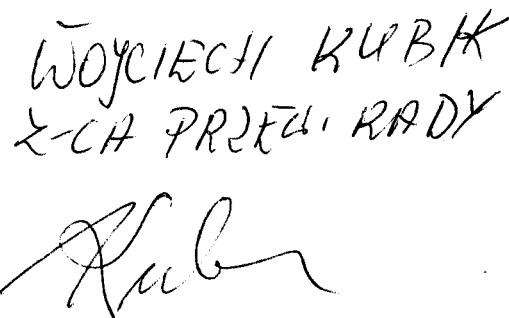 WOJCIECH KUBIK
Z-CA PRZEW. RADY
Kub